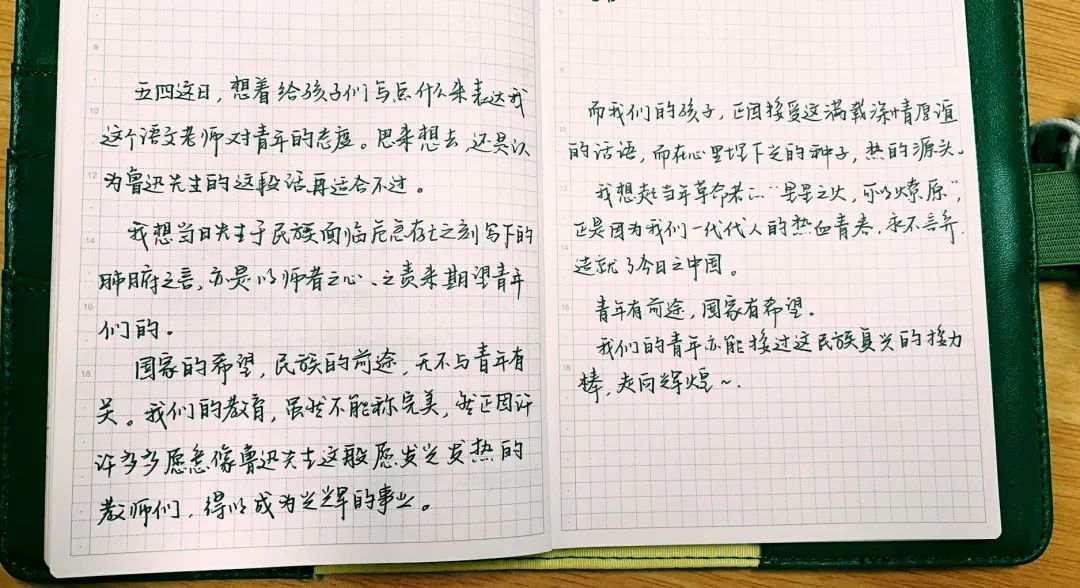 五四这日，想着给孩子们写点什么来表达我
这个语文老师对青年的态度。思来想去，还是认
为鲁迅先生的这段话再适合不过。
我想当日先生于民族面临危急存亡之刻写下的
肺腑之言，亦是以师者之心、之责来期望青年
们的。
国家的希望，民族的前途，无不与青年有
关。我们的教育，虽然不能称完美，然正因许
许多多愿意像鲁迅先生这般愿发光发热的
教师们，得以成为光辉的事业。
而我们的孩子，正因接受这满载深情厚谊
的话语，而在心里埋下光的种子，热的源头。
我想起当年革命者云“星星之火，可以燎原”，
正是因为我们一代代人的热血青春，永不言弃，
造就了今日之中国。
青年有前途，国家有希望。
我们的青年亦能接过这民族复兴的接力
棒，走向辉煌～.
8
10
12
14
16
18
10
12
14
16
18